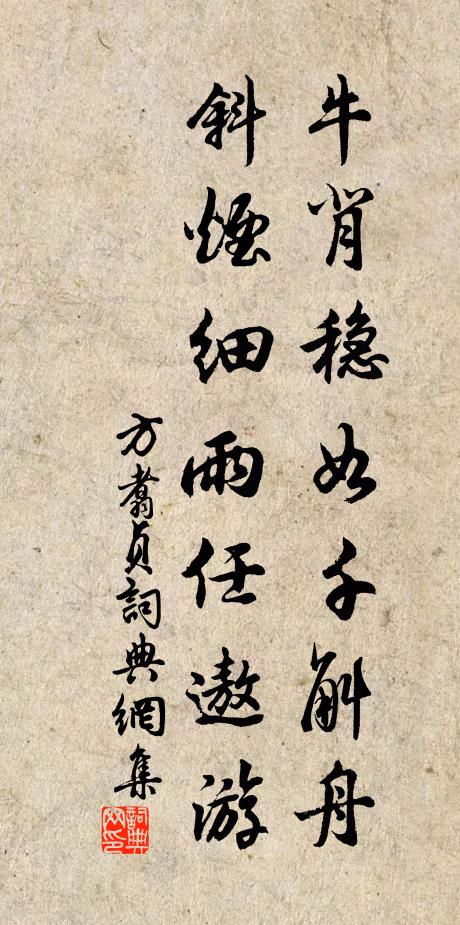 牛背稳如千斛舟
斜煙細雨任遨游
方翥貞詞典網集
詞典网印